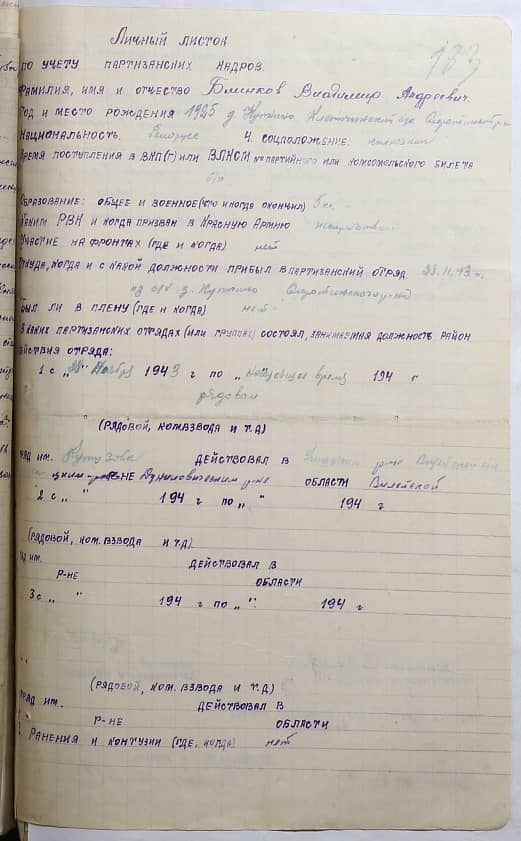 Личный листок
183
по учету партизанских кадров.
Фамилия, имя и отчество Блинков Владимир Андреевич.
Год и место рождения 1925 д.
Национальность Белорусс 4. соцположение. колхозник
Время поступления в ВКП(б) или ВЛКСМ № партийного или комсомольского билета
б/п
Образование: общее и военное (что и когда окончил) 5 кл.
Каким РВК и когда призван в Красную Армию
Участие на фронтах (где и когда) нет
Откуда, когда и с какой должности прибыл в партизанский отряд. 28.11.43 г.
из с/х д.
Был ли в плену (где и когда) нет.
В каких партизанских отрядах (или группах) состоял, занимаемая должность район
действия отряда:
1 с „28" Ноября 1943 г по „настоящее время 194 г
рядовой
(рядовой, ком.взвода и т.д)
ряд им. Кутузова действовал в р-не
р-не р-не области Вилейской
2 с „ " 194 г по „ " 194 г
(рядовой, ком. взвода и т.д)
яд им. действовал в
р-не области
3 с „ " 194 г по „ ". 194 г
(рядовой, ком. взвода и т.д)
ряд им. действовал в
р-не области
Ранения и контузии (где, когда) нет